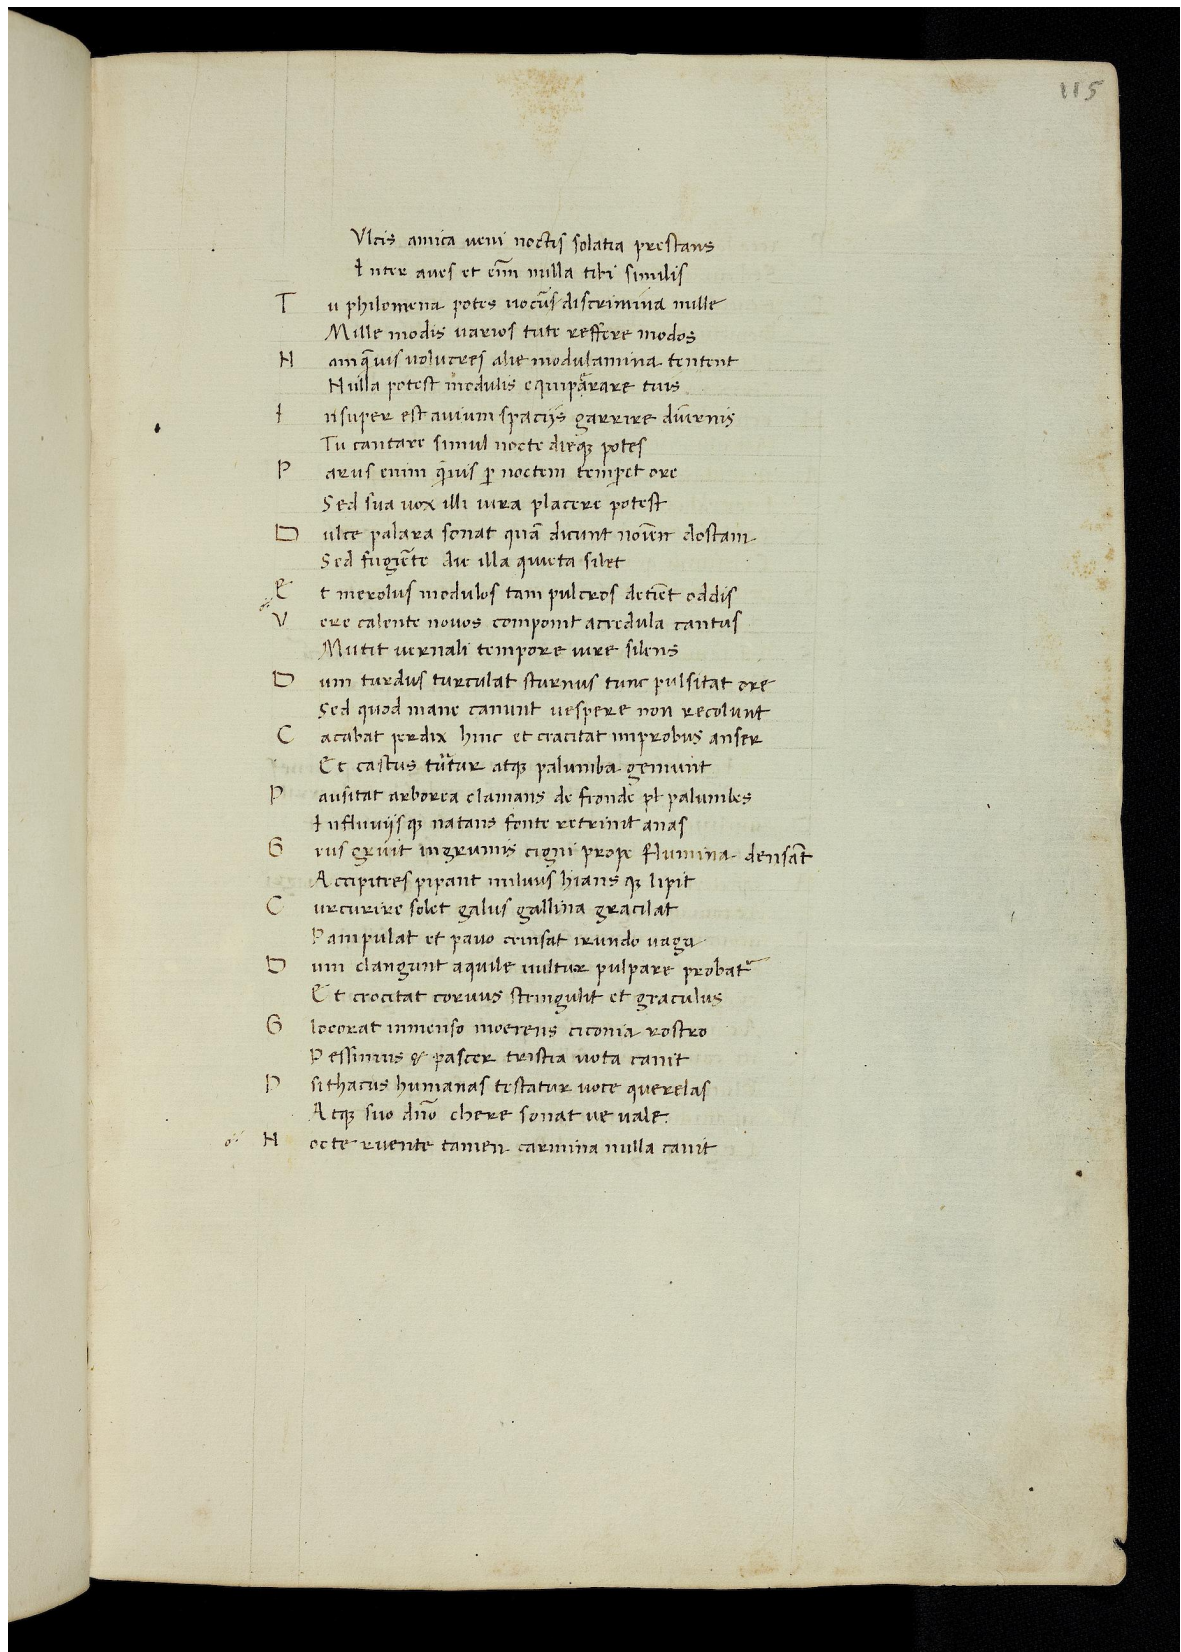 115
Vlcis amica ueni noctis solatia prestans
Inter aues et eni͞m nulla tibi similis
Tu philomena potes uocu͞ discrimina mille
Mille modis uarios tute reffere modos
Namq͞uis uolucres alie modulamina tentent
Nulla potest modulis equiparare tuis
Insuper est auium spacijs garrire diu͞rnis
Tu cantare simul nocte dieqꝫ potes
Parus enim q͞uis ꝑ noctem temp̲et ore
Sed sua uox illi iura placere potest
Dulce palara sonat qua͞ dicunt noi͞e dostam
Sed fugie͞te die illa quieta silet
Et merolus modulos tam pulcros detie͞t oddis
Vere calente nouos componit acredula cantus
Mutit uernali tempore iure silens
Dum turdus turculat sturnus tunc pulsitat ore
Sed quod mane canunt uespere non recolunt
Cacabat perdix hinc et ciacitat improbus anser
Et castus tu͞rtur atqꝫ palumba gemunt
Pausitat arborea clamans de fronde pl palumbes
Influuijsqꝫ natans fonte retrinit anas
Grus gruit ingrumis cigni prope flumina densa͞t
Accipitres pipant miluus hiansqꝫ lipit
Curcurire solet galus gallina gracilat
Pampulat et pauo trinsat irundo uaga
Dum clangunt aquile uultur pulpare probat᷑
Et crocitat coruus stringulit et graculus
Glocorat inmenso moerens ciconia rostro
Pessimus & passer tristia uota canit
Psithacus humanas testatur uoce querelas
Atqꝫ suo dn͞o chere sonat ue uale.
Nocte ruente tamen carmina nulla canit